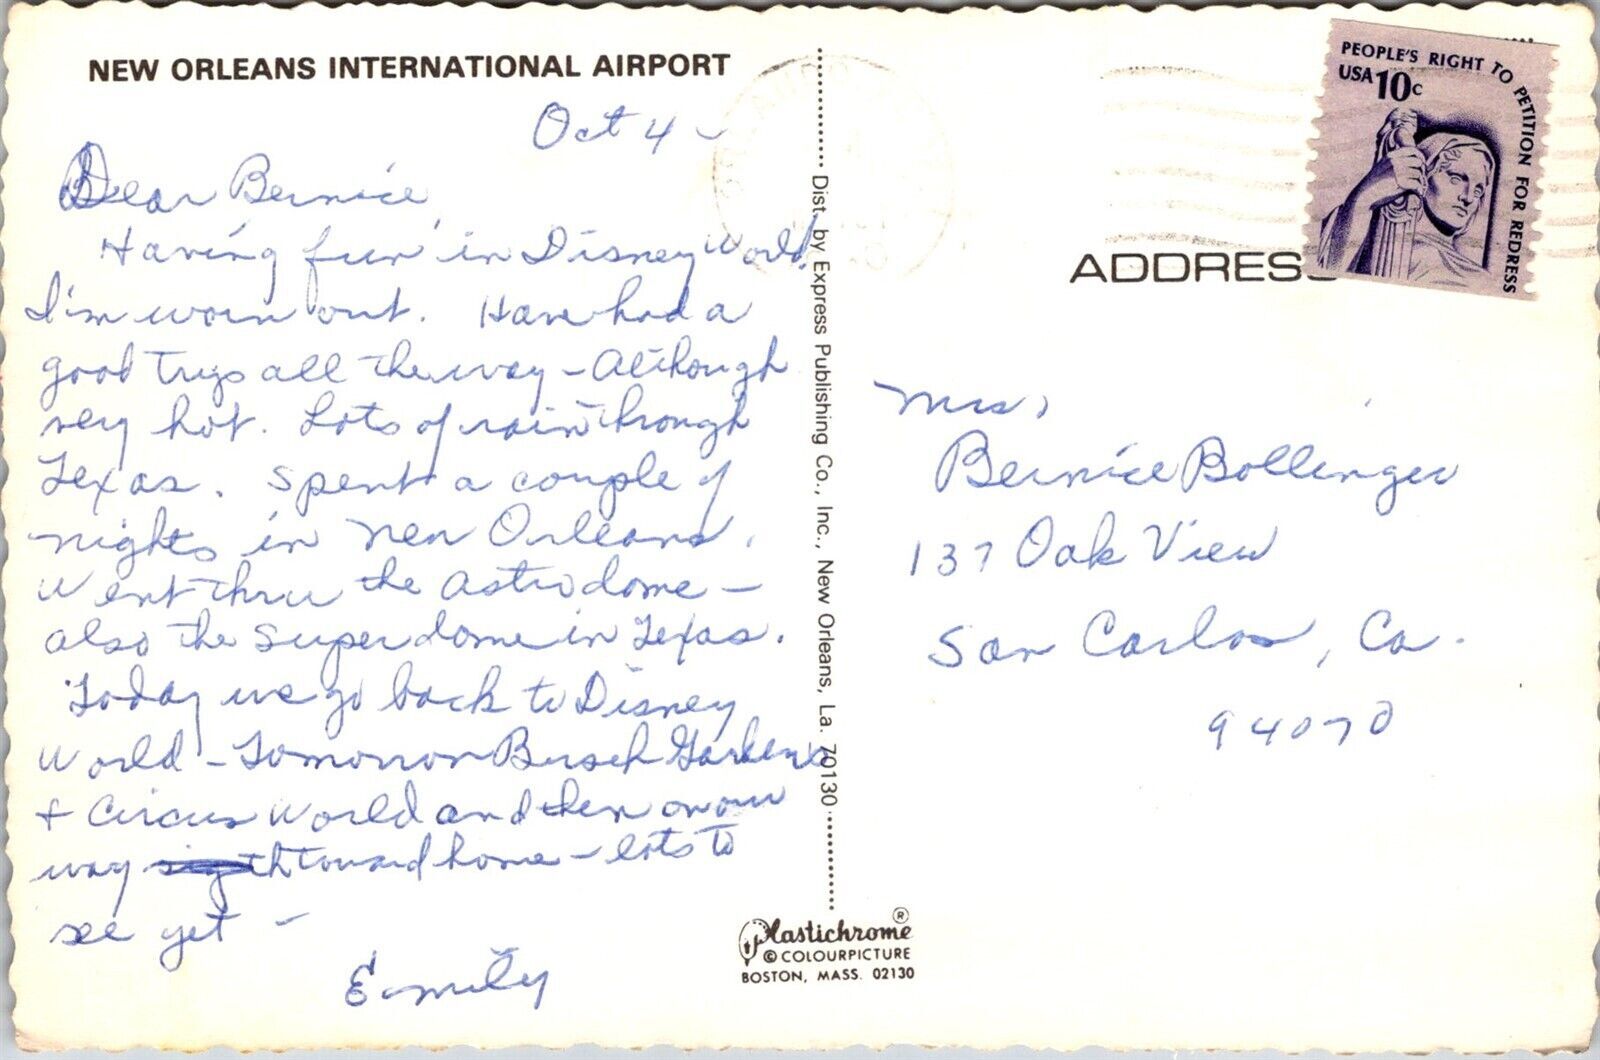 NEW ORLEANS INTERNATIONAL AIRPORT
Oct 4 -
Dear Bernice,
Having fun in Disney World.
I'm worn out. Have had a
good trip all the way - Although
very hot. Lots of rain through
Texas. Spent a couple of
nights in New Orleans.
Went thru the Astrodome -
also the Superdome in Texas.
Today we go back to Disney
World - Tomorrow Busch Gardens
& Circus World and then on our
way toward home - lots to
see yet -
Emily
Dist. by Express Publishing Co., Inc., New Orleans, La. 70130
Plastichrome ®
© COLOURPICTURE
BOSTON, MASS. 02130
PEOPLE'S RIGHT TO PETITION FOR REDRESS
USA 10c
ADDRESS
Mrs,
Bernice Bollinger
137 Oak View
San Carlos, Ca.
94070